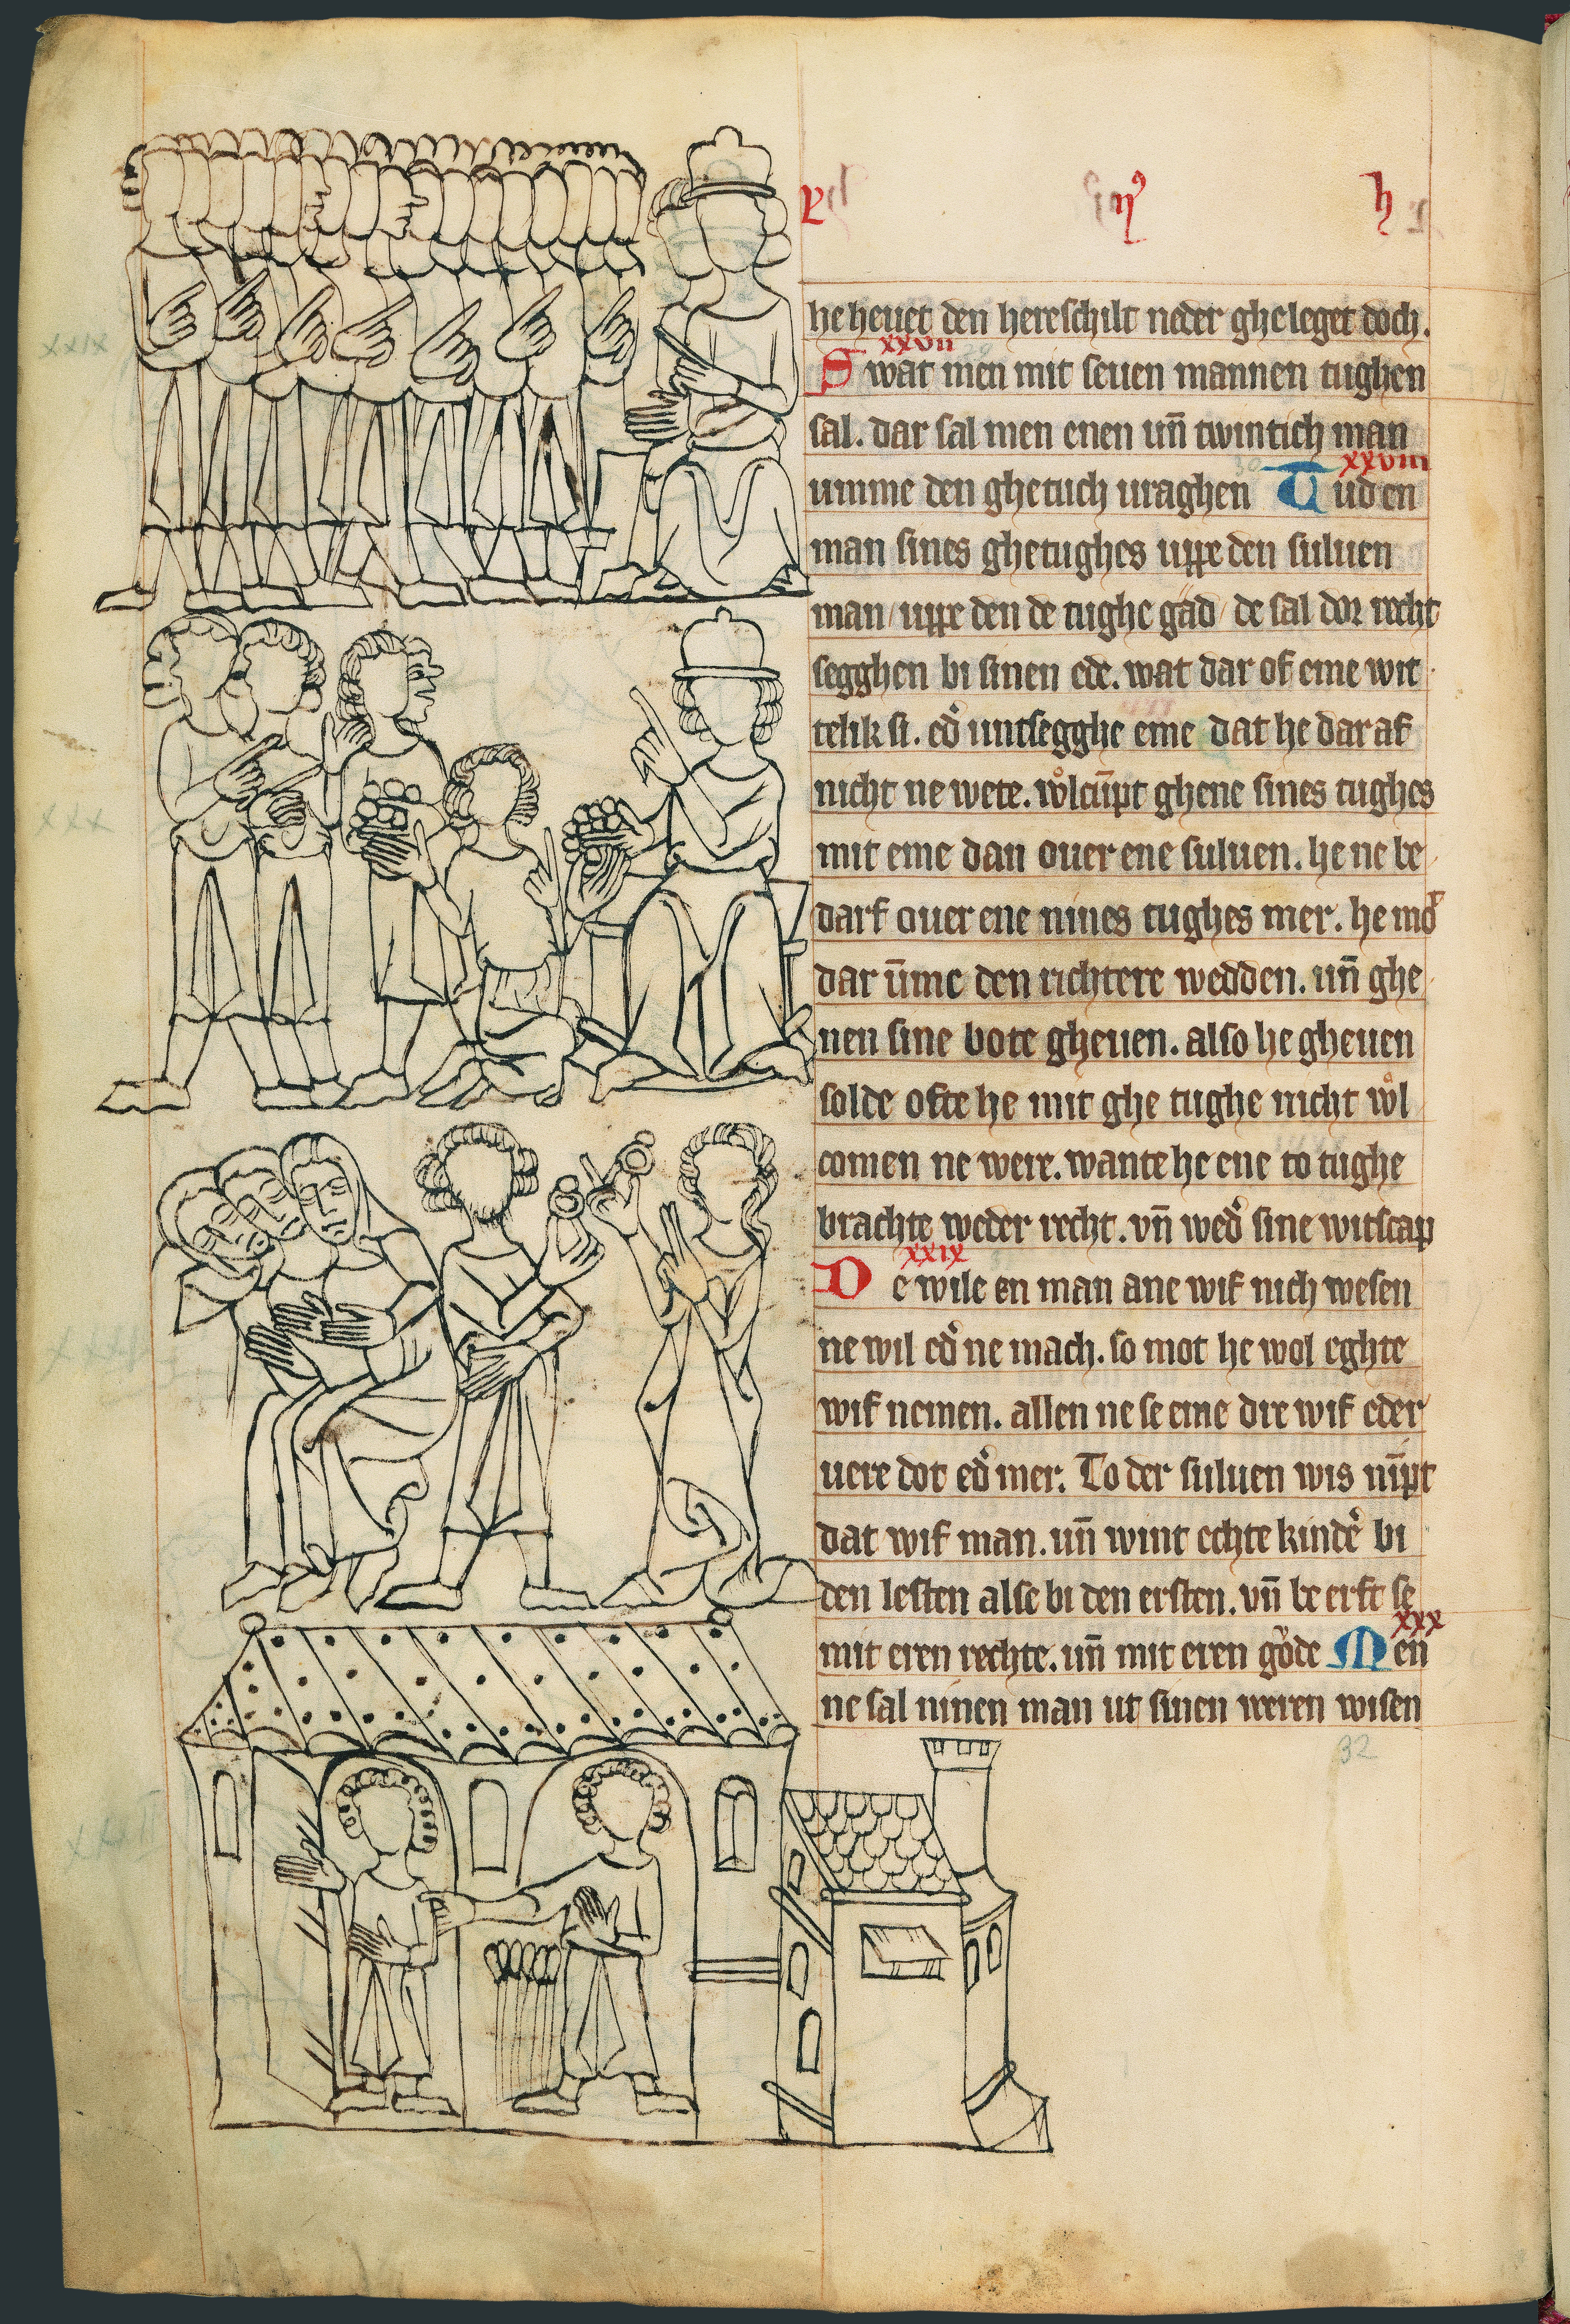 he heuet den hereschilt neder gheleget doch.
xxvii
Swat men mit seuen mannen tughen
sal. dar sal men enen un̄ twintich man
xxviii
umme den ghetuch uraghen Tud en
man sines ghetughes uppe den suluen
man / uppe den de tughe gād / de sal dor recht
segghen bi sinen ede. wat dar of eme wit
telik si. ed᷎ untsegghe eme dat he dar af
nicht ne wete. wͦlcūpt ghene sines tughes
mit eme dan ouer ene suluen. he ne be
darf ouer ene nines tughes mer. he mͦt
dar ūme den richtere wedden. un̄ ghe
nen sine bote gheuen. also he gheuen
solde ofte he mit ghe tughe nicht wͦl
comen ne were. wante he ene to tughe
brachte weder recht. vn̄ wed᷎ sine witscap
xxix
De wile en man ane wif nich wesen
ne wil ed᷎ ne mach. so mot he wol eghte
wif nemen. allen ne se eme dre wif eder
uere dot ed᷎ mer. To der suluen wis nīpt
dat wif man. un̄ wint echte kind᷎e bi
den lesten alse bi den ersten. vn̄ be erft se
xxx
mit eren rechte. un̄ mit eren gͦde Men
ne sal ninen man ut sinen weren wisen
32